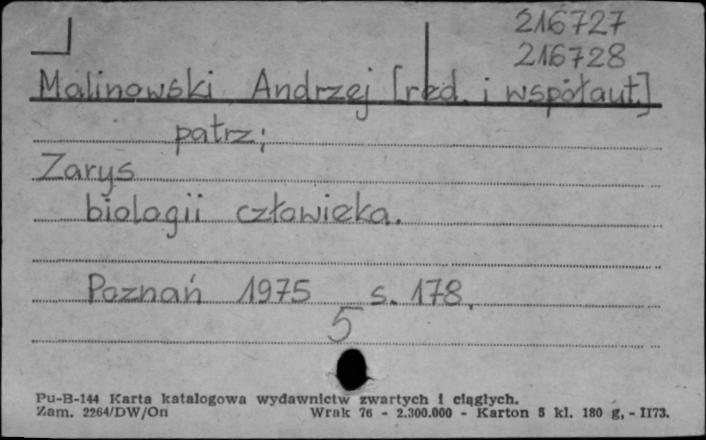 216727
216728
Malinowski Andrzej [red. i współaut.]
patrz:
Zarys
biologii człowieka.
Poznań 1975 s. 178.
5
Pu-B-144 Karta katalogowa wydawnictw zwartych i ciągłych.
Zam. 2264/DW/On Wrak 76 - 2.300.000 - Karton 5 kl. 180 g, - II73.